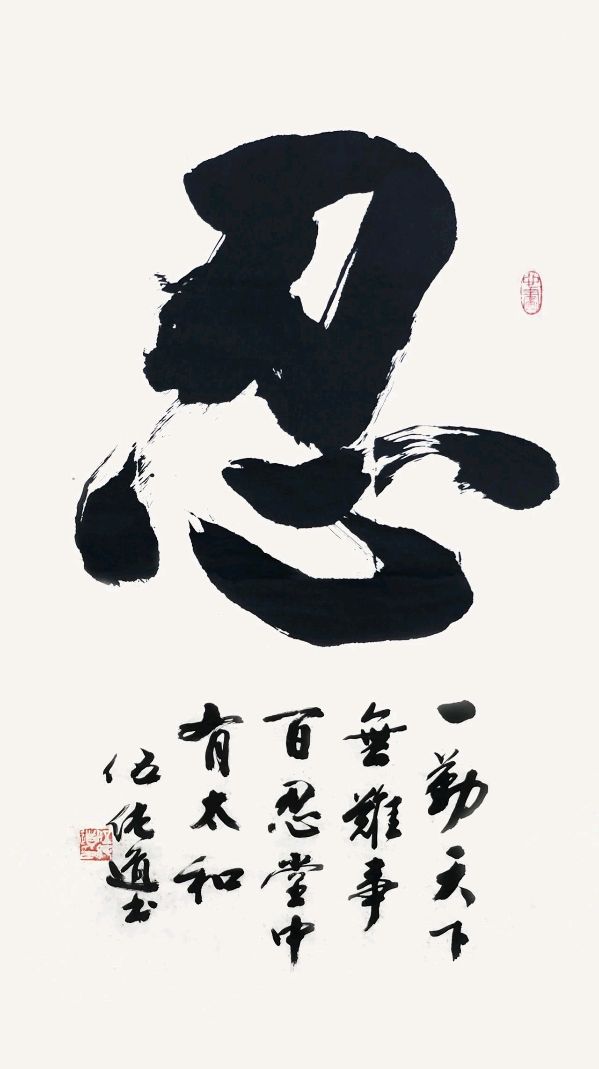 忍
一勤天下
無難事
百忍堂中
有太和
伍純道書